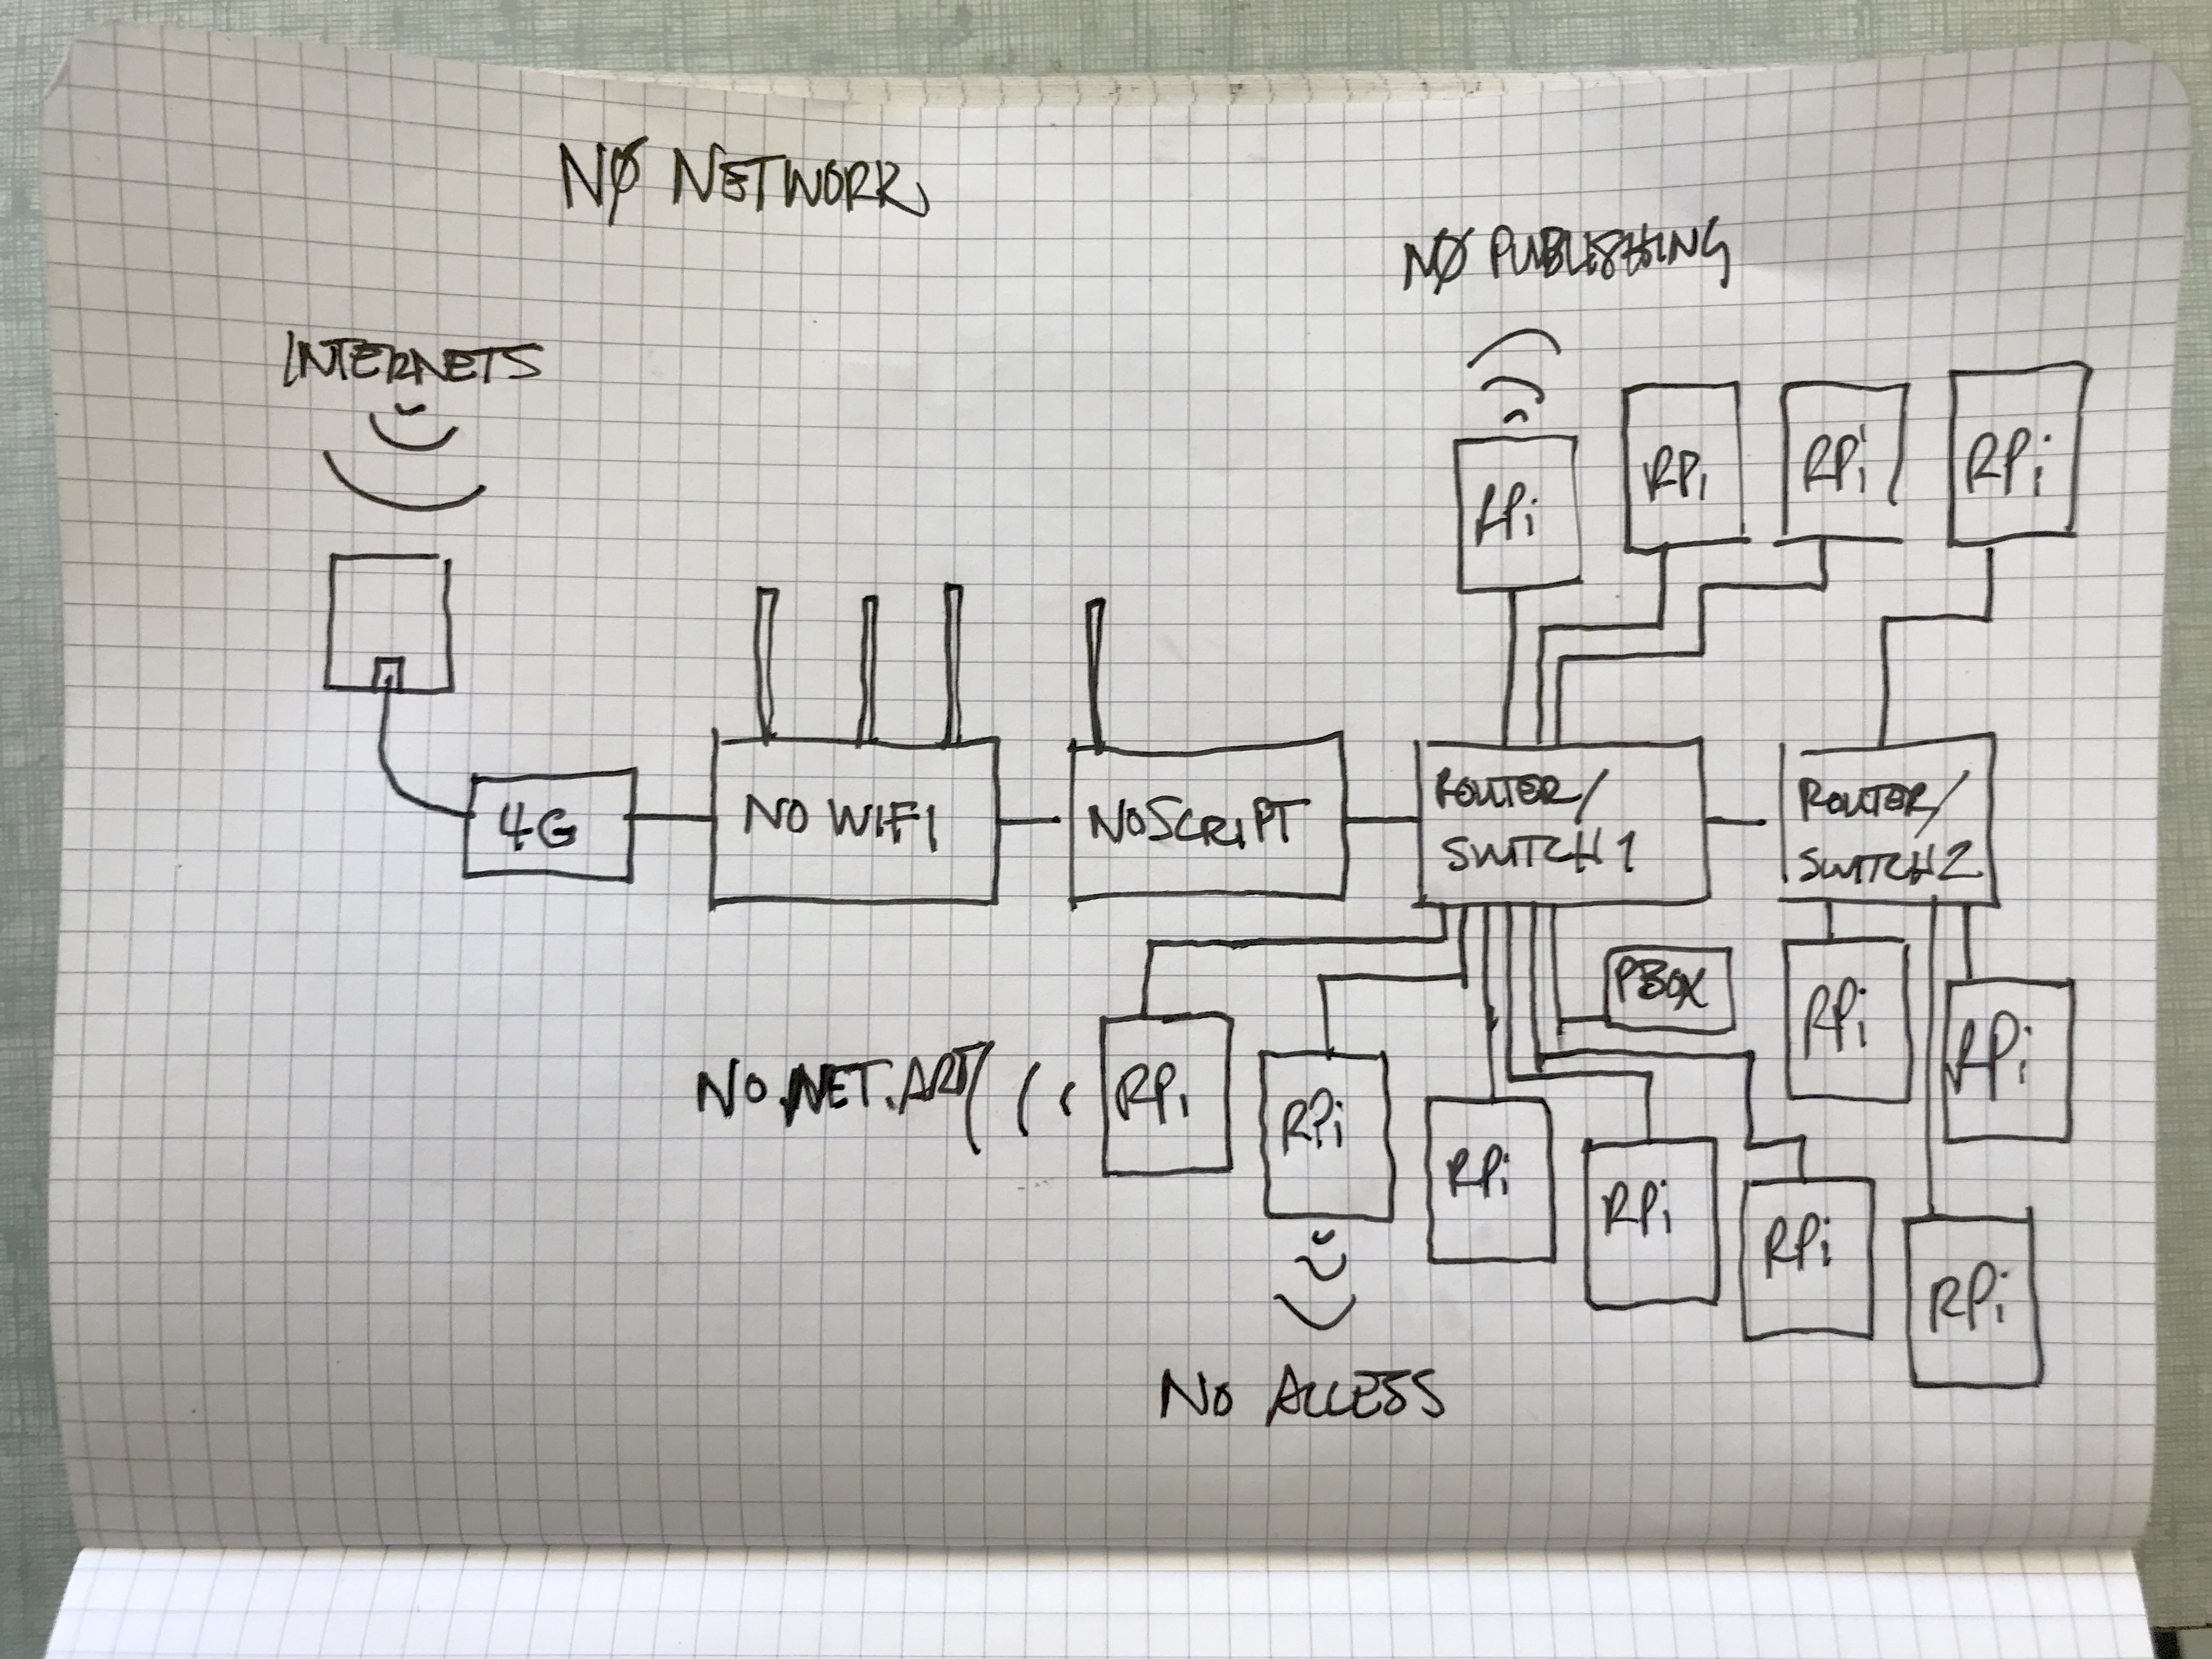 NØ NETWORK
NØ PUBLISHING
INTERNETS
RPi
RPi
RPi
RPi
4G
NO WIFI
NOSCRIPT
ROUTER/
SWITCH 1
ROUTER/
SWITCH 2
PBOX
RPi
RPi
NO.NET.ART
RPi
RPi
RPi
RPi
RPi
RPi
NO ACCESS